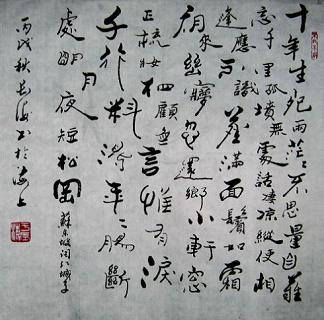 十年生死兩茫茫不思量自難
忘千里孤墳無處話凄凉縱使相
逢應不識塵滿面鬢如霜
夜來幽夢忽還鄉小軒窗
正梳妝相顧無言惟有淚
千行料得年年腸斷
處明月夜短松岡
蘇東坡詞江城子
丙戌秋书於海上